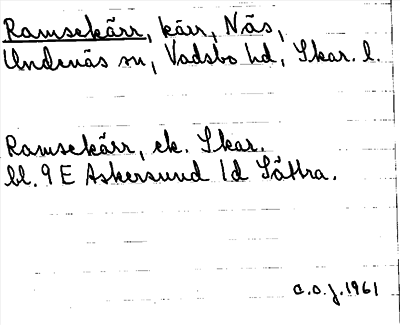 Ramsekärr, kärr, Näs,
Undenäs sn, Vadsbo hd, Skar. l.
Ramsekärr, ek. Skar.
bl. 9 E Askersund 1d Sättra.
a.o.j. 1961